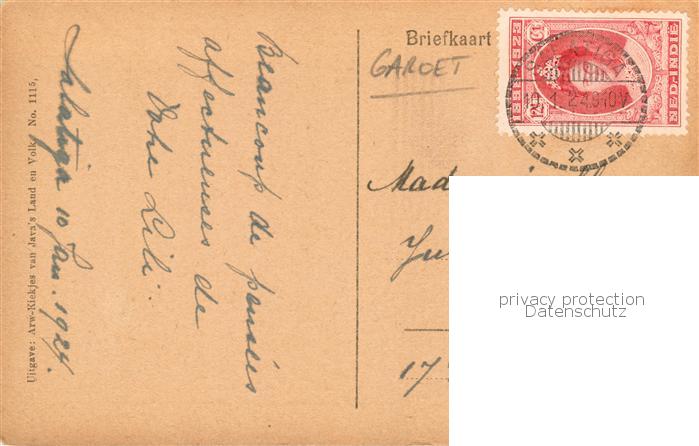 Uitgave: Arw-Kiekjes van Java's Land en Volk, No. 1115,
Salatiga 10 Jan. 1924.
Beaucoup de pensées
affectueuses de
Votre Lili
Briefkaart
GAROET
1898-1923
NED-INDIE
10.1.24.9-10V
Mad
17
privacy protection
Datenschutz